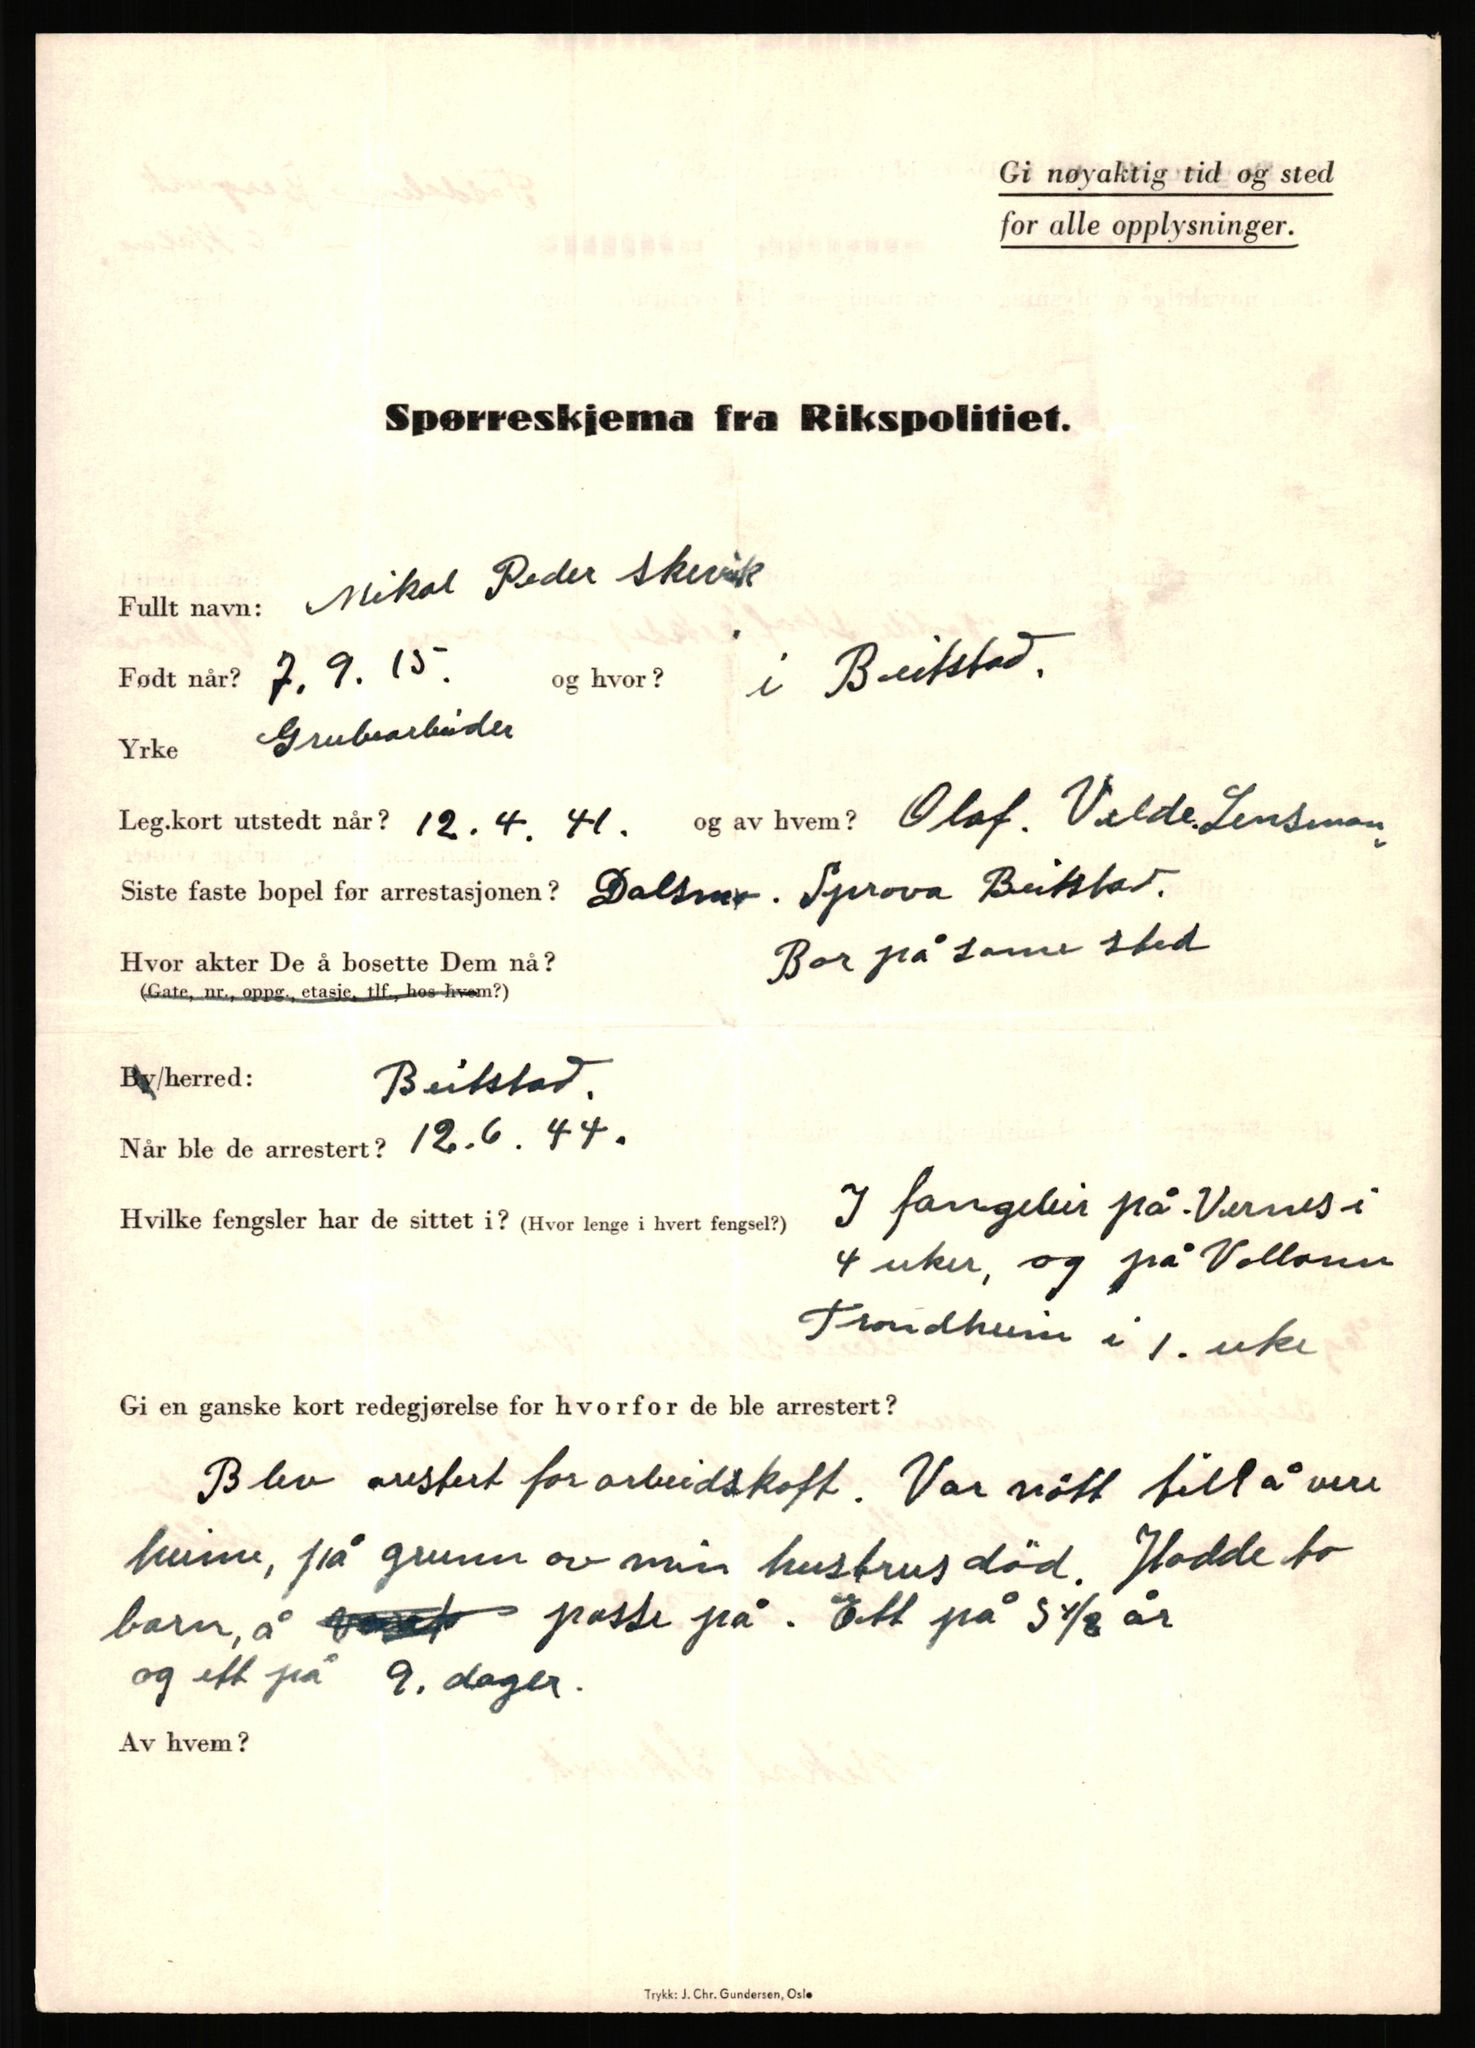 Gi nøyaktig tid og sted
for alle opplysninger.
Spørreskjema fra Rikspolitiet.
Fullt navn: Mikal Peder Skevik
Født når? 7. 9. 15. og hvor? i Beitstad.
Yrke Grubearbeider
Leg.kort utstedt når? 12. 4. 41. og av hvem? Olaf. Velde. Lensman
Siste faste bopel før arrestasjonen? Dalsmo. Sprova Beitstad.
Hvor akter De å bosette Dem nå? Bor på same sted
(Gate, nr., oppg., etasje, tlf., hos hvem?)
By/herred: Beitstad.
Når ble de arrestert? 12. 6. 44.
Hvilke fengsler har de sittet i? (Hvor lenge i hvert fengsel?) I fangeleir på Vernes i
4 uker, og på Vollann
Trondheim i 1. uke
Gi en ganske kort redegjørelse for hvorfor de ble arrestert?
Blev arestert for arbeidskaft. Var nött till å vere
heime, på grunn av min hustrus död. Hadde to
barn, å passe på. Ett på 5 1/2 år
og ett på 9. dager.
Av hvem?
Trykk: J. Chr. Gundersen, Oslo